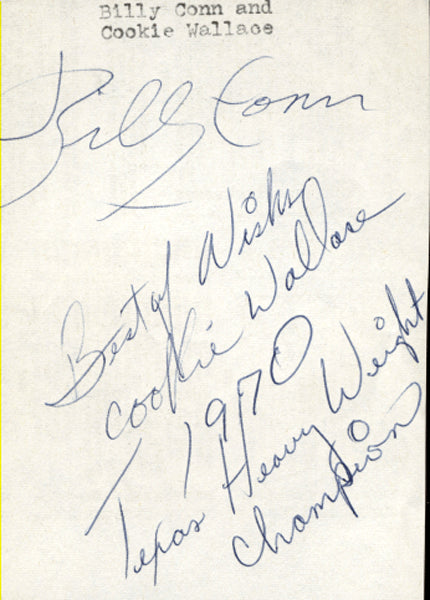 Billy Conn and
Cookie Wallace
Billy Conn
Best of Wishs
Cookie Wallace
1970
Texas Heavy Weight
Champion